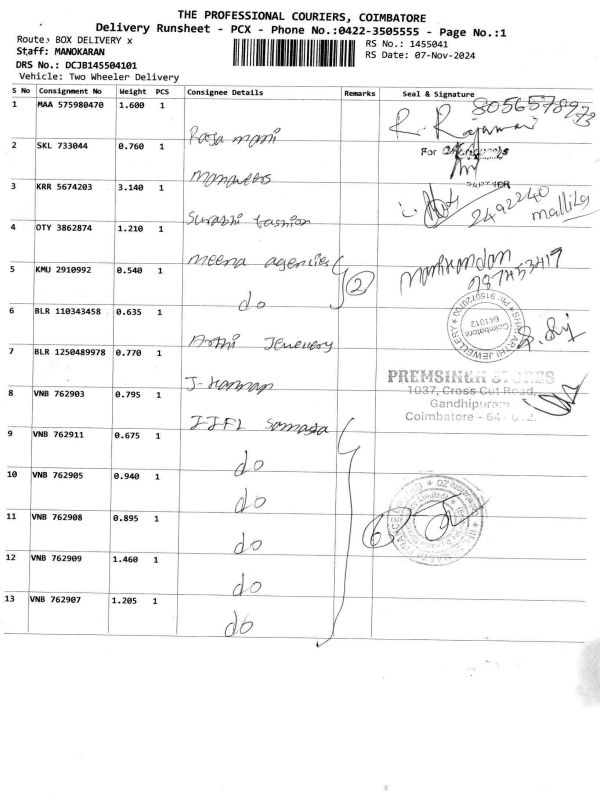 THE PROFESSIONAL COURIERS, COIMBATORE
Delivery Runsheet - PCX - Phone No.:0422-3505555 - Page No.:1
Route: BOX DELIVERY x
RS No.: 1455041
Staff: MANOKARAN
RS Date: 07-Nov-2024
DRS No.: DCJB145504101
Vehicle: Two Wheeler Delivery
S No Consignment No Weight PCS Consignee Details Remarks Seal & Signature
1 MAA 575980470 1.600 1 Raja mani 8056578973
R. Rajamani
2 SKL 733044 0.760 1
For
PARTNER
3 KRR 5674203 3.140 1 Surabhi fashion 2492240
mallika
4 OTY 3862874 1.210 1 meena agencies
Manikandan
5 KMU 2910992 0.540 1 do 2
6 BLR 110343458 0.635 1 Arthi
Coimbatore
641012
7 BLR 1250489978 0.770 1 J-Kannan
PREMSINGH STORES
1037, Cross Cut Road,
Gandhipuram,
Coimbatore - 641 012.
8 VNB 762903 0.795 1 IIFL Samasta
9 VNB 762911 0.675 1 do
10 VNB 762905 0.940 1 do
11 VNB 762908 0.895 1 do 6
12 VNB 762909 1.460 1 do
13 VNB 762907 1.205 1 do